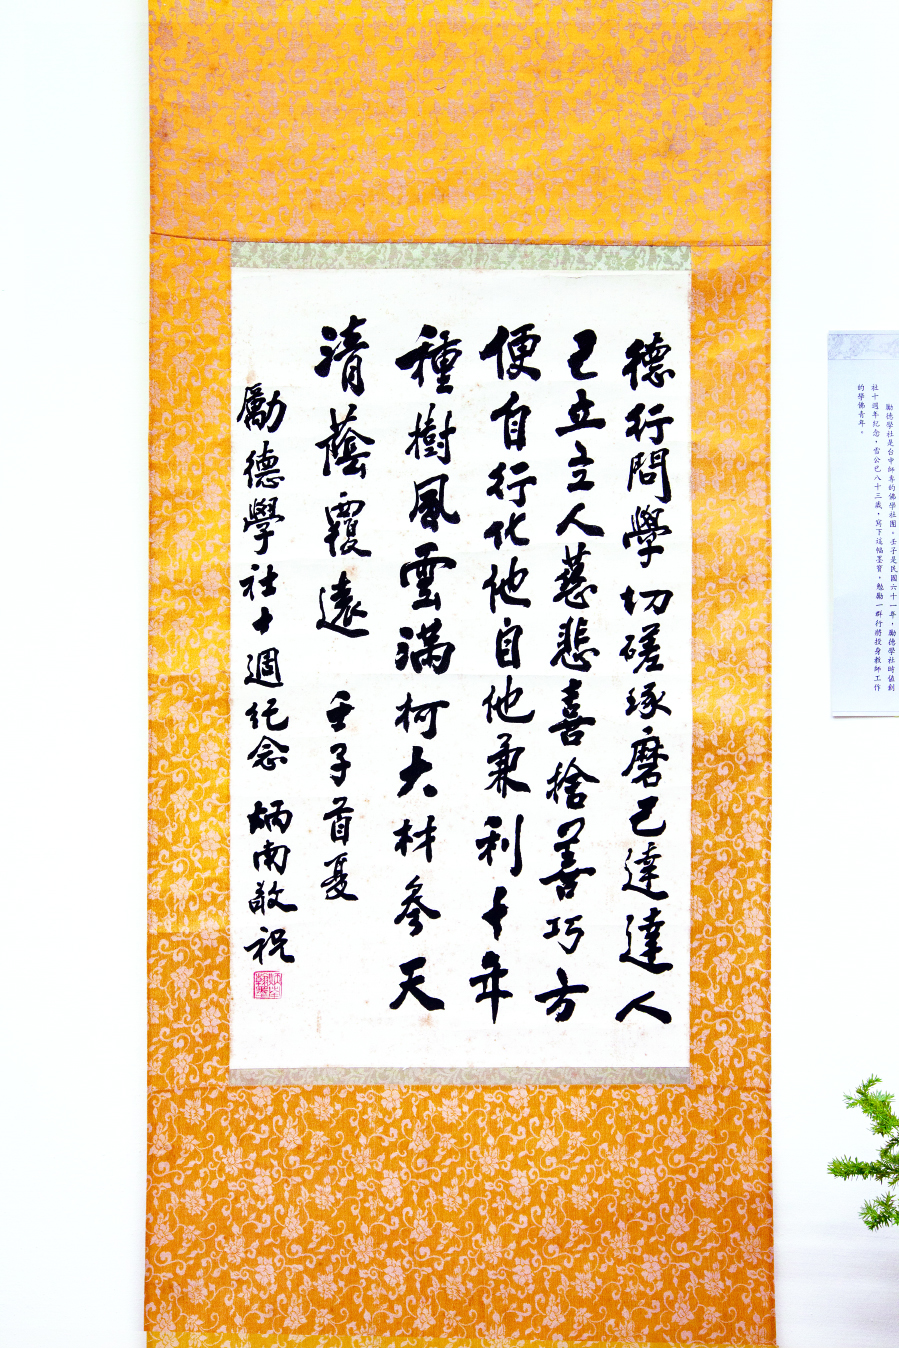 德行問學切磋琢磨己達達人
己立立人慈悲喜捨善巧方
便自行化他自他兼利十年
種樹風雲滿柯大材參天
清蔭覆遠 壬子首夏
勵德學社十週紀念 炳南敬祝
勵德學社是台中師專的佛學社團。壬子是民國六十一年，勵德學社時值創
社十週年紀念，雪公已八十三歲，寫下這幅墨寶，勉勵一群行將投身教師工作
的學佛青年。